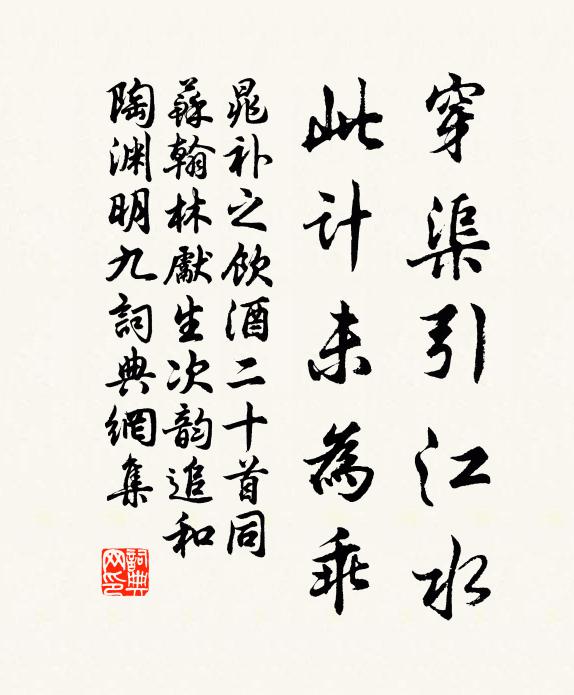 穿渠引江水
此計未為乖
晁补之飲酒二十首同
蘇翰林獻生次韵追和
陶渊明九詞典網集
詞典
网印